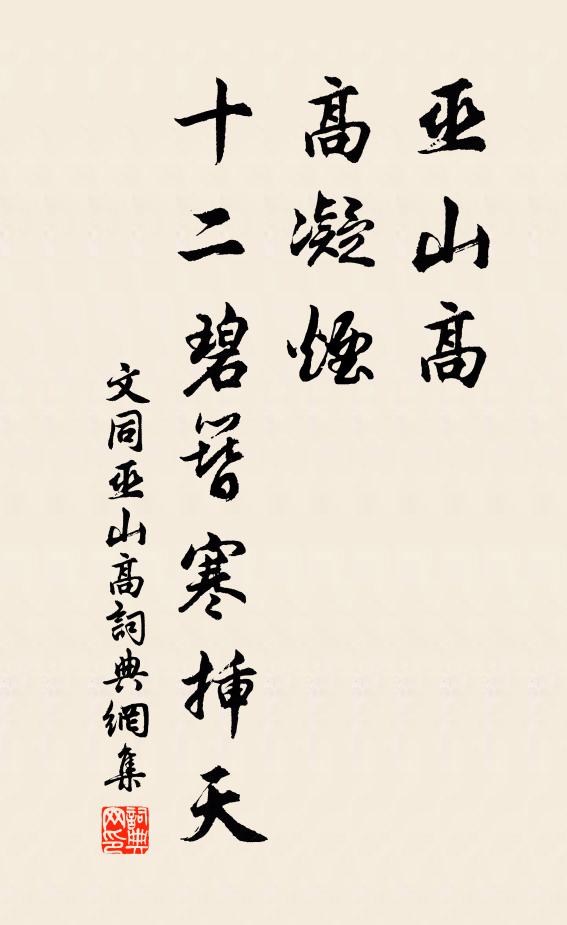 巫山高
高凝煙
十二碧簪寒揷天
文同巫山高詞典網集
詞典网印